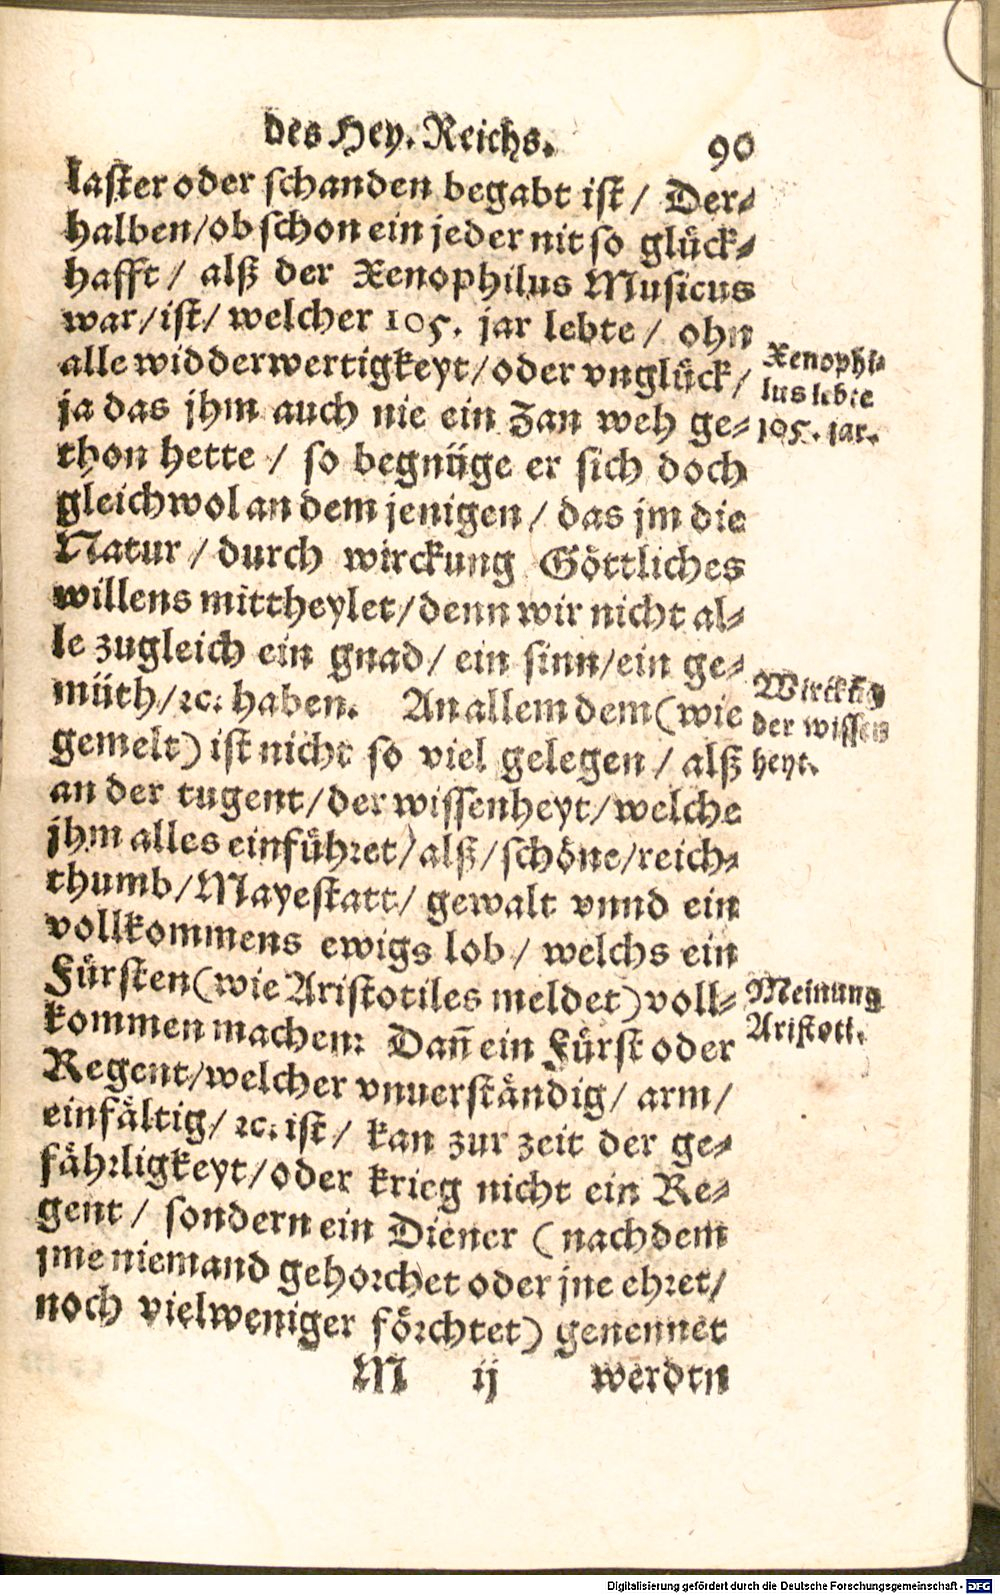 des Hey. Reichs. 90
laster oder schanden begabt ist / Der-
halben/ob schon ein jeder nit so glück-
hafft / alß der Xenophilus Musicus
war/ist/ welcher 105. jar lebte / ohn
alle widderwertigkeyt/oder vnglück/
ja das jhm auch nie ein Zan weh ge-
thon hette / so begnüge er sich doch
gleichwol an dem jenigen / das jm die
Natur / durch wirckung Göttliches
willens mittheylet/denn wir nicht al-
le zugleich ein gnad/ ein sinn/ein ge-
müth/ꝛc. haben. An allem dem (wie
gemelt) ist nicht so viel gelegen / alß
an der tugent/der wissenheyt/welche
jhm alles einführet/alß/schöne/reich-
thumb/Mayestatt/ gewalt vnnd ein
vollkommens ewigs lob / welchs ein
Fürsten(wie Aristotiles meldet)voll-
kommen machen: Dañ ein Fürst oder
Regent/welcher vnuerständig/ arm/
einfältig/ ꝛc. ist / kan zur zeit der ge-
fährligkeyt/oder krieg nicht ein Re-
gent / sondern ein Diener ( nachdem
jme niemand gehorchet oder jne ehret/
noch vielweniger förchtet) genennet
M ij werden
Xenophi-
lus lebte
105. jar.
Wirckūg
der wissen
heyt.
Meinung
Aristoti.
Digitalisierung gefördert durch die Deutsche Forschungsgemeinschaft - DFG